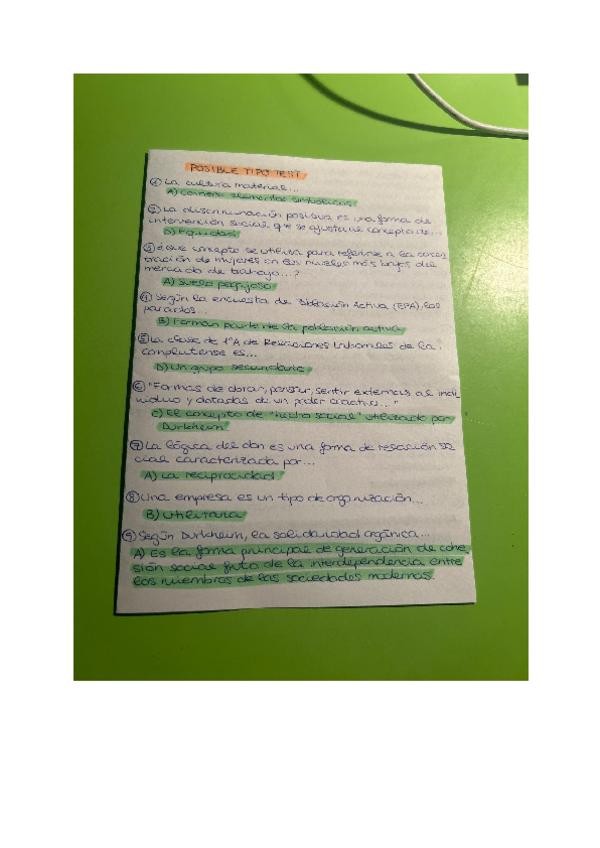 POSIBLE TIPO TEST
① La cultura material...
A) Contiene elementos simbólicos
② La discriminación positiva es una forma de
intervención social que se ajusta al concepto de...
D) Equidad
③ ¿Qué concepto se utiliza para referirse a la concen
tración de mujeres en los niveles más bajos del
mercado de trabajo...?
A) Suelo pegajoso
④ Según la encuesta de Población Activa (EPA), los
parados...
B) Forman parte de la población activa
⑤ La clase de 1ºA de Relaciones Laborales de la
complutense es...
D) Un grupo secundario
⑥ "Formas de obrar, pensar, sentir externas al indi
viduo y dotadas de un poder coactivo..."
C) El concepto de "hecho social" utilizado por
Durkheim
⑦ La lógica del don es una forma de relación so
cial caracterizada por...
A) La reciprocidad
⑧ Una empresa es un tipo de organización...
B) Utilitaria
⑨ Según Durkheim, la solidaridad orgánica...
A) Es la forma principal de generación de cohe
sión social fruto de la interdependencia entre
los miembros de las sociedades modernas